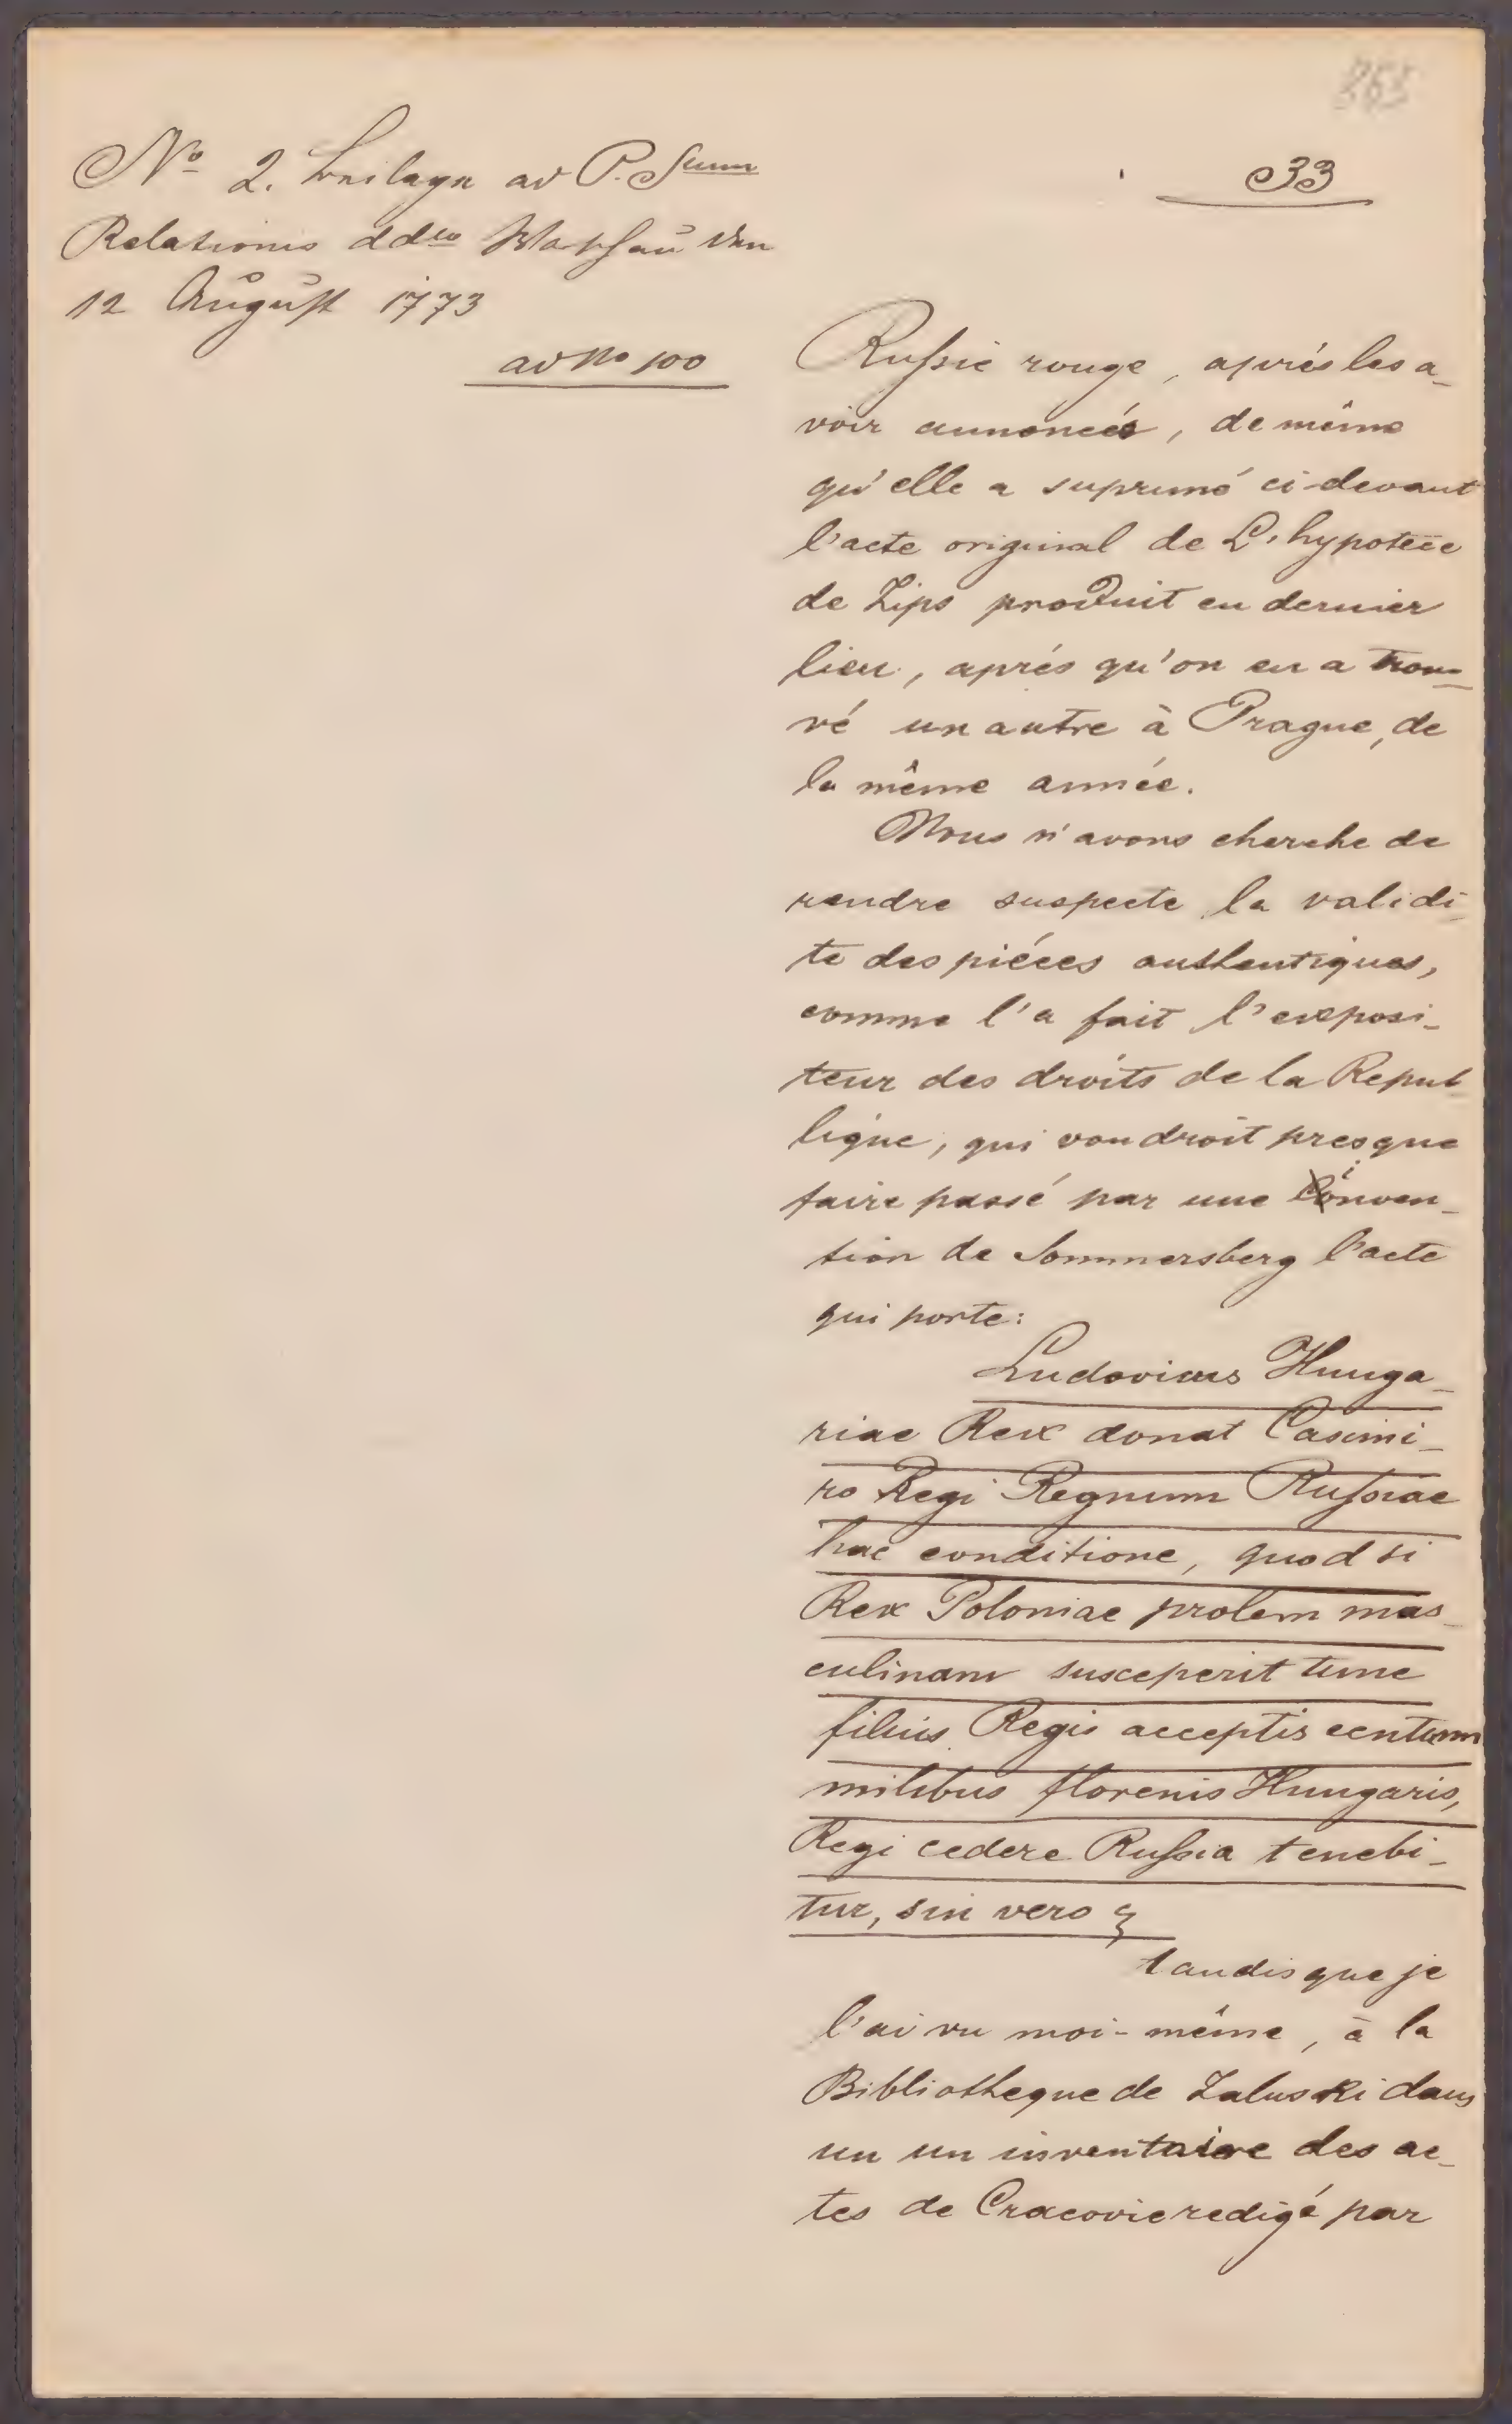 865
33
No 2. Beilage ad P. Sum
Relationis ddto Warschau den
12 August 1773
ad No 100
Russie rouge, aprés les a-
voir annoncés, de même
qu'elle a suprimé ci-devant
l'acte original de L'hypotece
de Zips produit en dernier
lieu, aprés qu'on en a trou-
vé un autre à Prague, de
la même année.
Nous n'avons cherche de
rendre suspecte la validi
te des piéces authentiques,
comme l'a fait l'exposi-
teur des droits de la Repub
lique, qui voudroit presque
faire passé par une inven-
tion de Sommersberg l'acte
qui porte:
Ludovicus Hunga-
riae Rex donat Casimi-
ro Regi Regnum Russiae
hac conditione, quod si
Rex Poloniae prolem mas-
culinam susceperit tunc
filius Regis acceptis centum
milibus florenis Hungaris,
Regi cedere Russia tenebi-
tur, sin vero
tandis que je
l'ai vu moi-même, à la
Bibliotheque de Zaluski dans
un un inventaire des ac-
tes de Cracovie redigé par